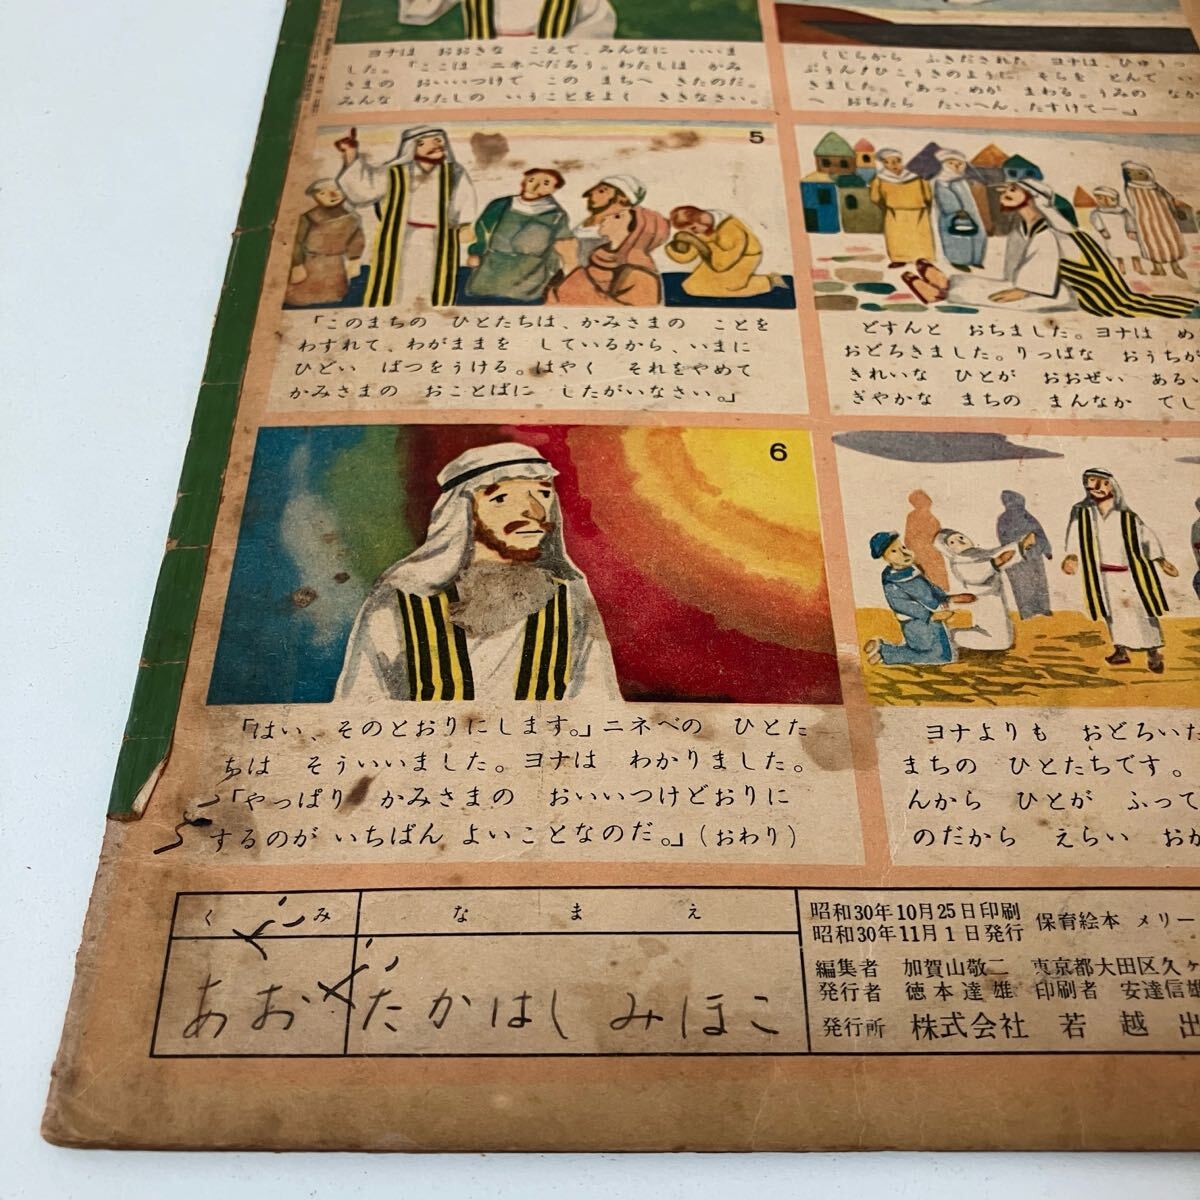 ヨナは おおきな こえで、みんなに いいま
した。「ここは ニネベだろう。わたしは かみ
さまの おいいつけで この まちへ きたのだ。
みんな わたしの いうことをよく ききなさい。
5
「このまちの ひとたちは、かみさまの ことを
わすれて、わがままを しているから、いまに
ひどい ばつをうける。はやく それをやめて
かみさまの おことばに したがいなさい。」
6
「はい、そのとおりにします。」ニネベの ひとた
ちは そういいました。ヨナは わかりました。
「やっぱり かみさまの おいいつけどおりに
するのが いちばん よいことなのだ。」(おわり)
くじらから ふきだされた ヨナは、ひゅうっ
ぷうん!ひこうきのように そらを とんで い
きました。「あっ、めが まわる。うみの なか
へ おちたら たいへん、たすけてー」
どすんと おちました。ヨナは め
おどろきました。りっぱな おうちが
きれいな ひとが おおぜい あるい
ぎやかな まちの まんなか でし
ヨナよりも おどろいた
まちの ひとたちです。
んから ひとが ふって
のだから えらい おか
くみ
なまえ
あお
たかはし みほこ
昭和30年10月25日印刷
昭和30年11月1日発行
保育絵本 メリー
編集者 加賀山敬二 東京都大田区久ヶ
発行者 徳本達雄 印刷者 安達信雄
発行所 株式会社 若越出